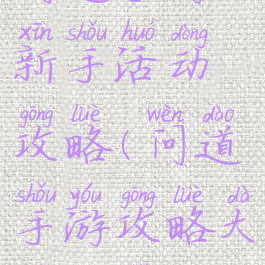 xīn shǒu huó dòng
新手活动
gōng lüè wèn dào
攻略(问道
shǒu yóu gōng lüè dà
手游攻略大